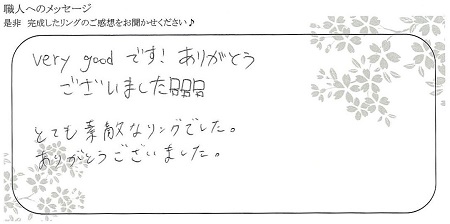 職人へのメッセージ
是非 完成したリングのご感想をお聞かせください♪
very good です! ありがとう
ございました
とても素敵なリングでした。
ありがとうございました。